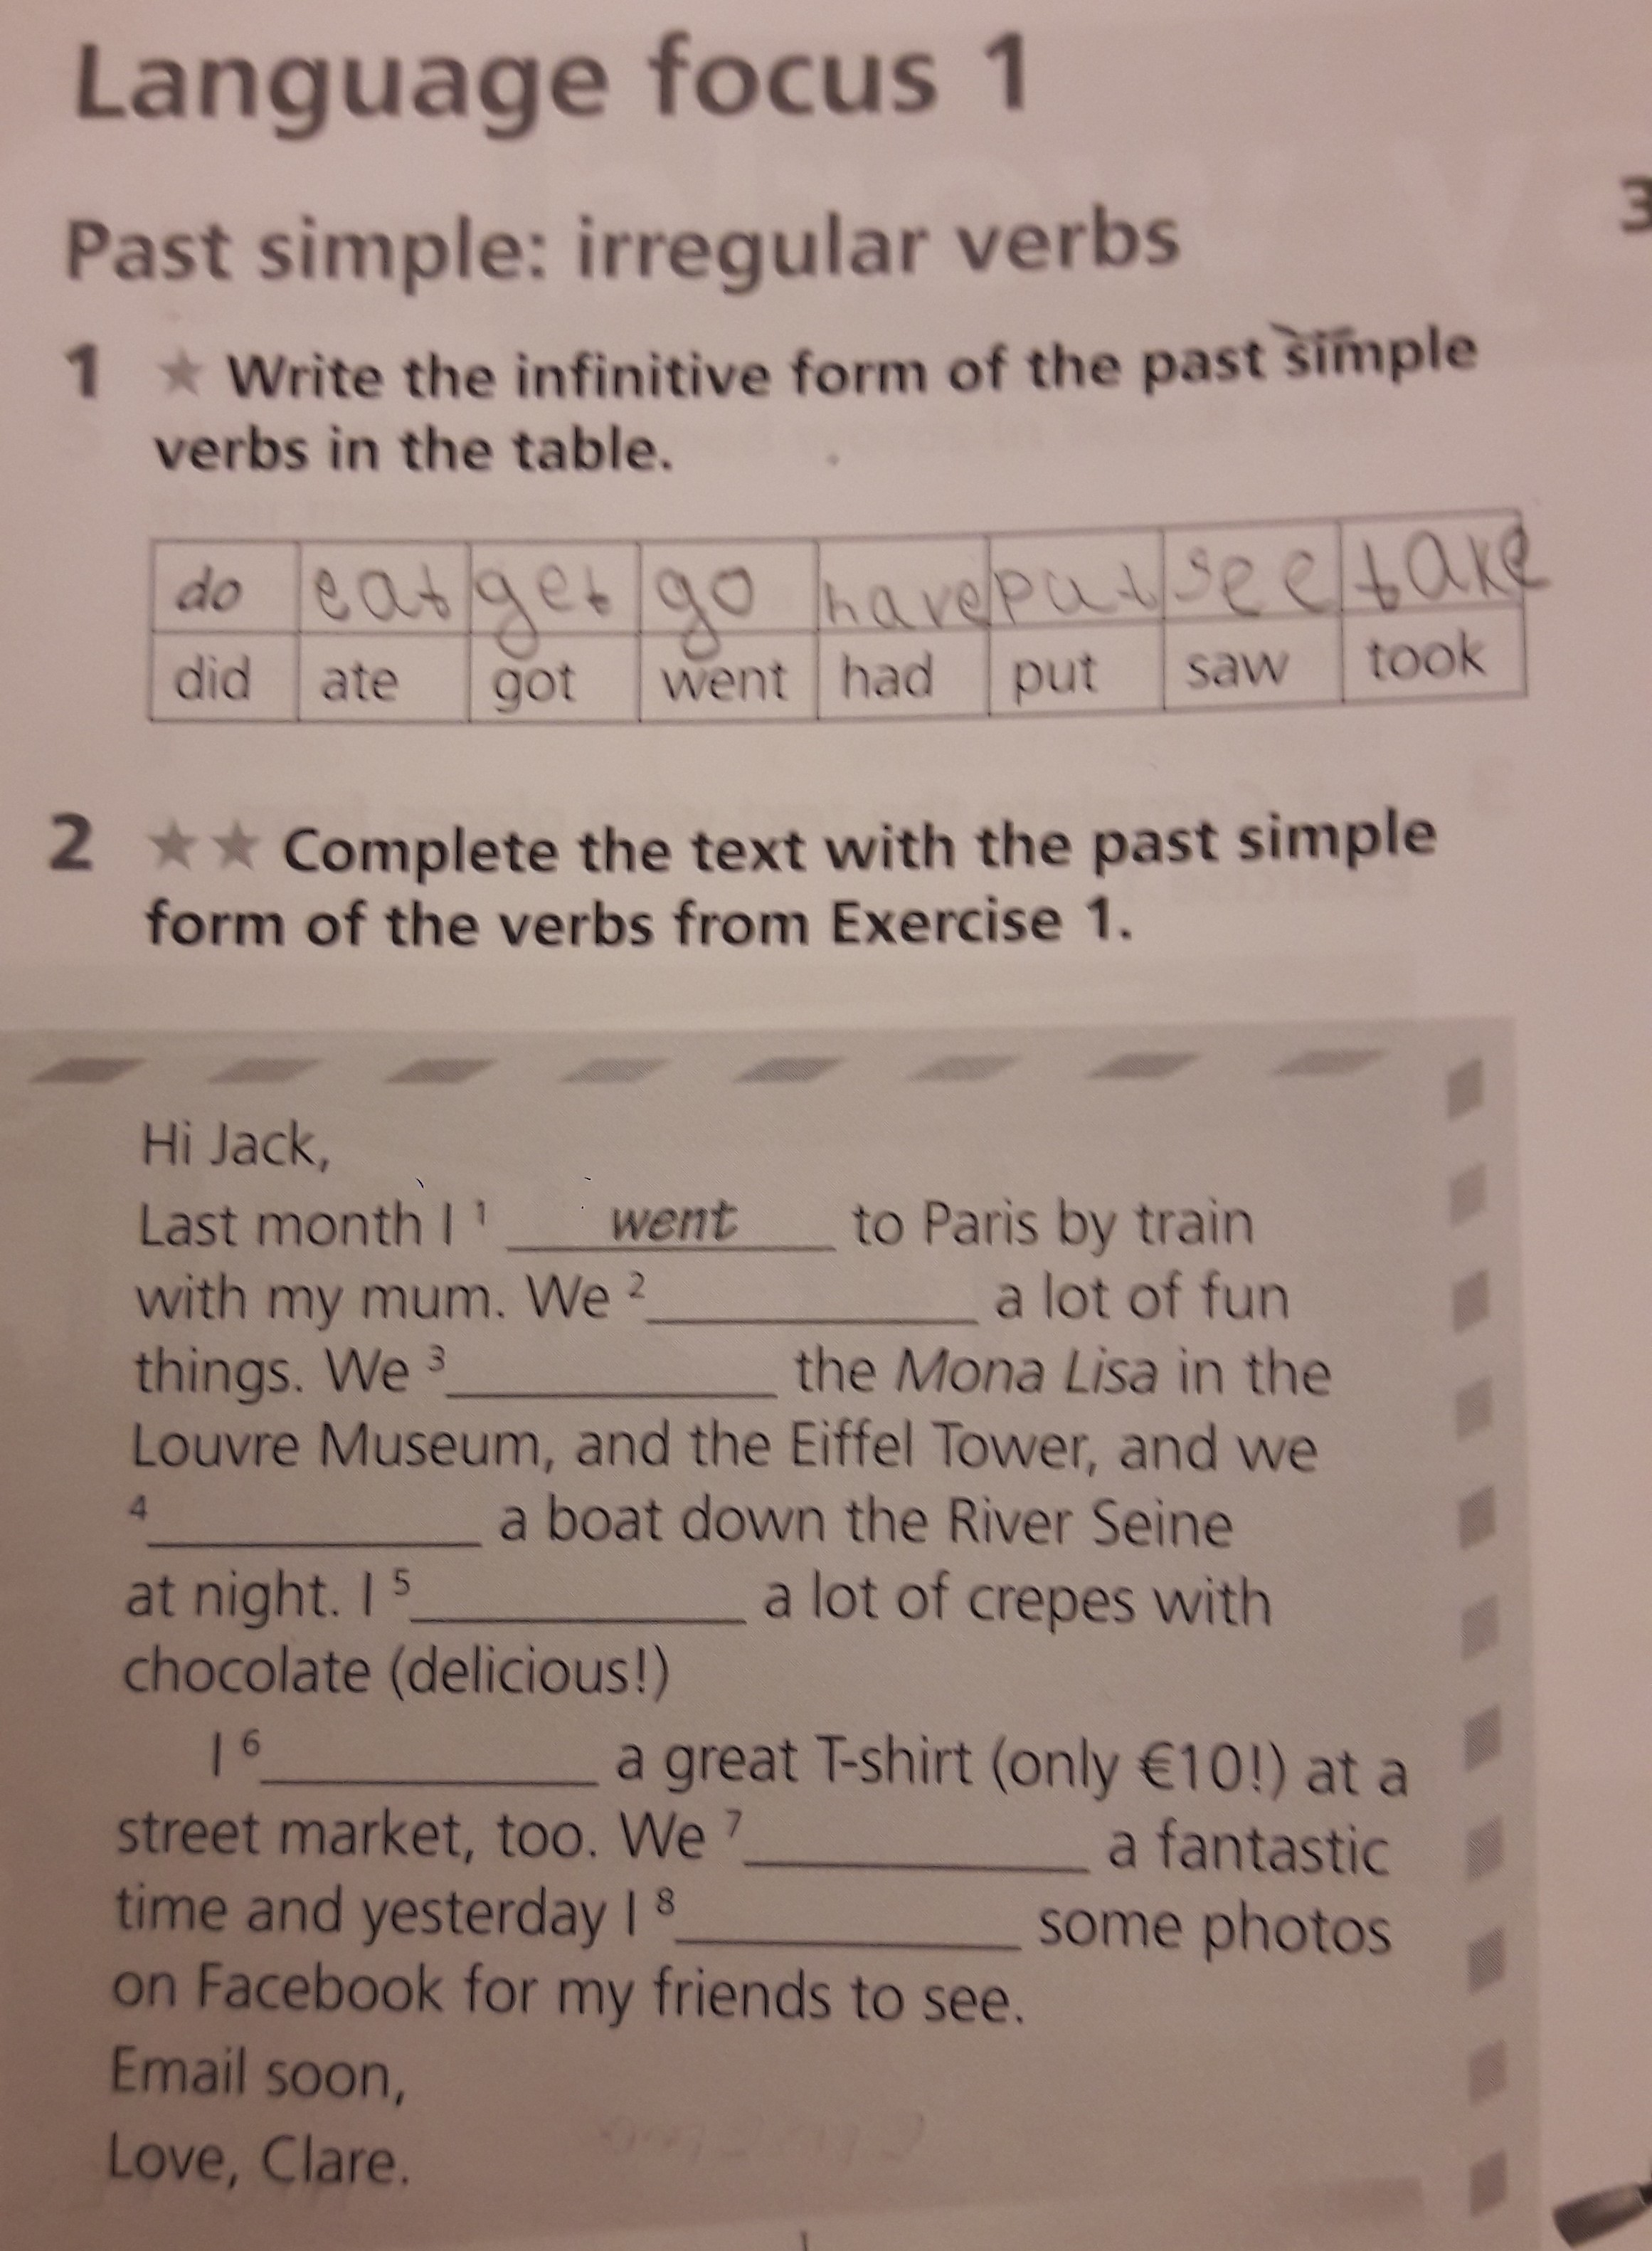 Language focus 1
Past simple: irregular verbs
3
1 ★ Write the infinitive form of the past simple
verbs in the table.
do eat get go have put see take
did ate got went had put saw took
2 ★★ Complete the text with the past simple
form of the verbs from Exercise 1.
Hi Jack,
Last month I 1 went to Paris by train
with my mum. We 2 ____ a lot of fun
things. We 3 ____ the Mona Lisa in the
Louvre Museum, and the Eiffel Tower, and we
4 ____ a boat down the River Seine
at night. I 5 ____ a lot of crepes with
chocolate (delicious!)
I 6 ____ a great T-shirt (only €10!) at a
street market, too. We 7 ____ a fantastic
time and yesterday I 8 ____ some photos
on Facebook for my friends to see.
Email soon,
Love, Clare.